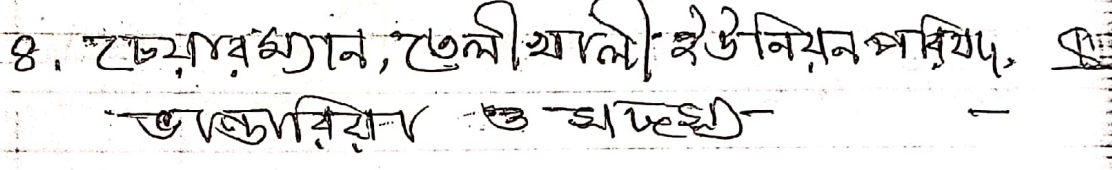 ৪. চেয়ারম্যান, তেলীখালী ইউনিয়ন পরিষদ,
ভান্ডারিয়া ও সদস্য -